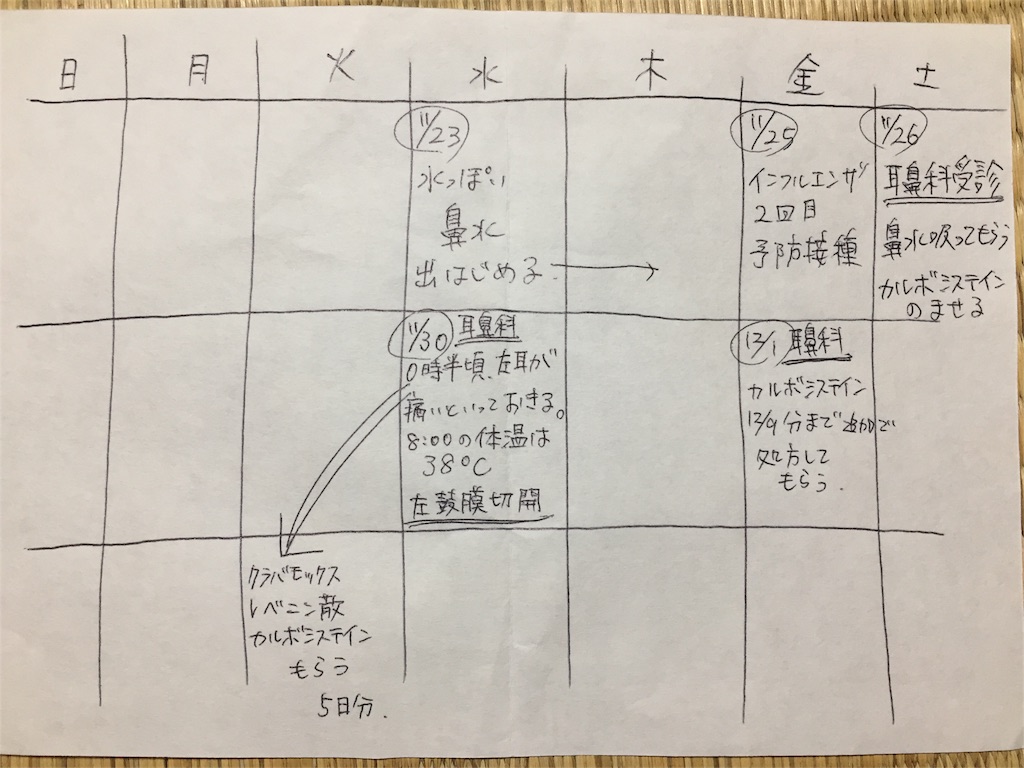 日 月 火 水 木 金 土
11/23
水っぽい
鼻水
出はじめる。
11/25
インフルエンザ
2回目
予防接種
11/26
耳鼻科受診
鼻水吸ってもらう
カルボシステイン
のませる
11/30 耳鼻科
0時半頃、左耳が
痛いといっておきる。
8:00の体温は
38℃
左鼓膜切開
12/1 耳鼻科
カルボシステイン
12/9分まで追加で
処方して
もらう.
クラバモックス
レベニン散
カルボシステイン
もらう
5日分.